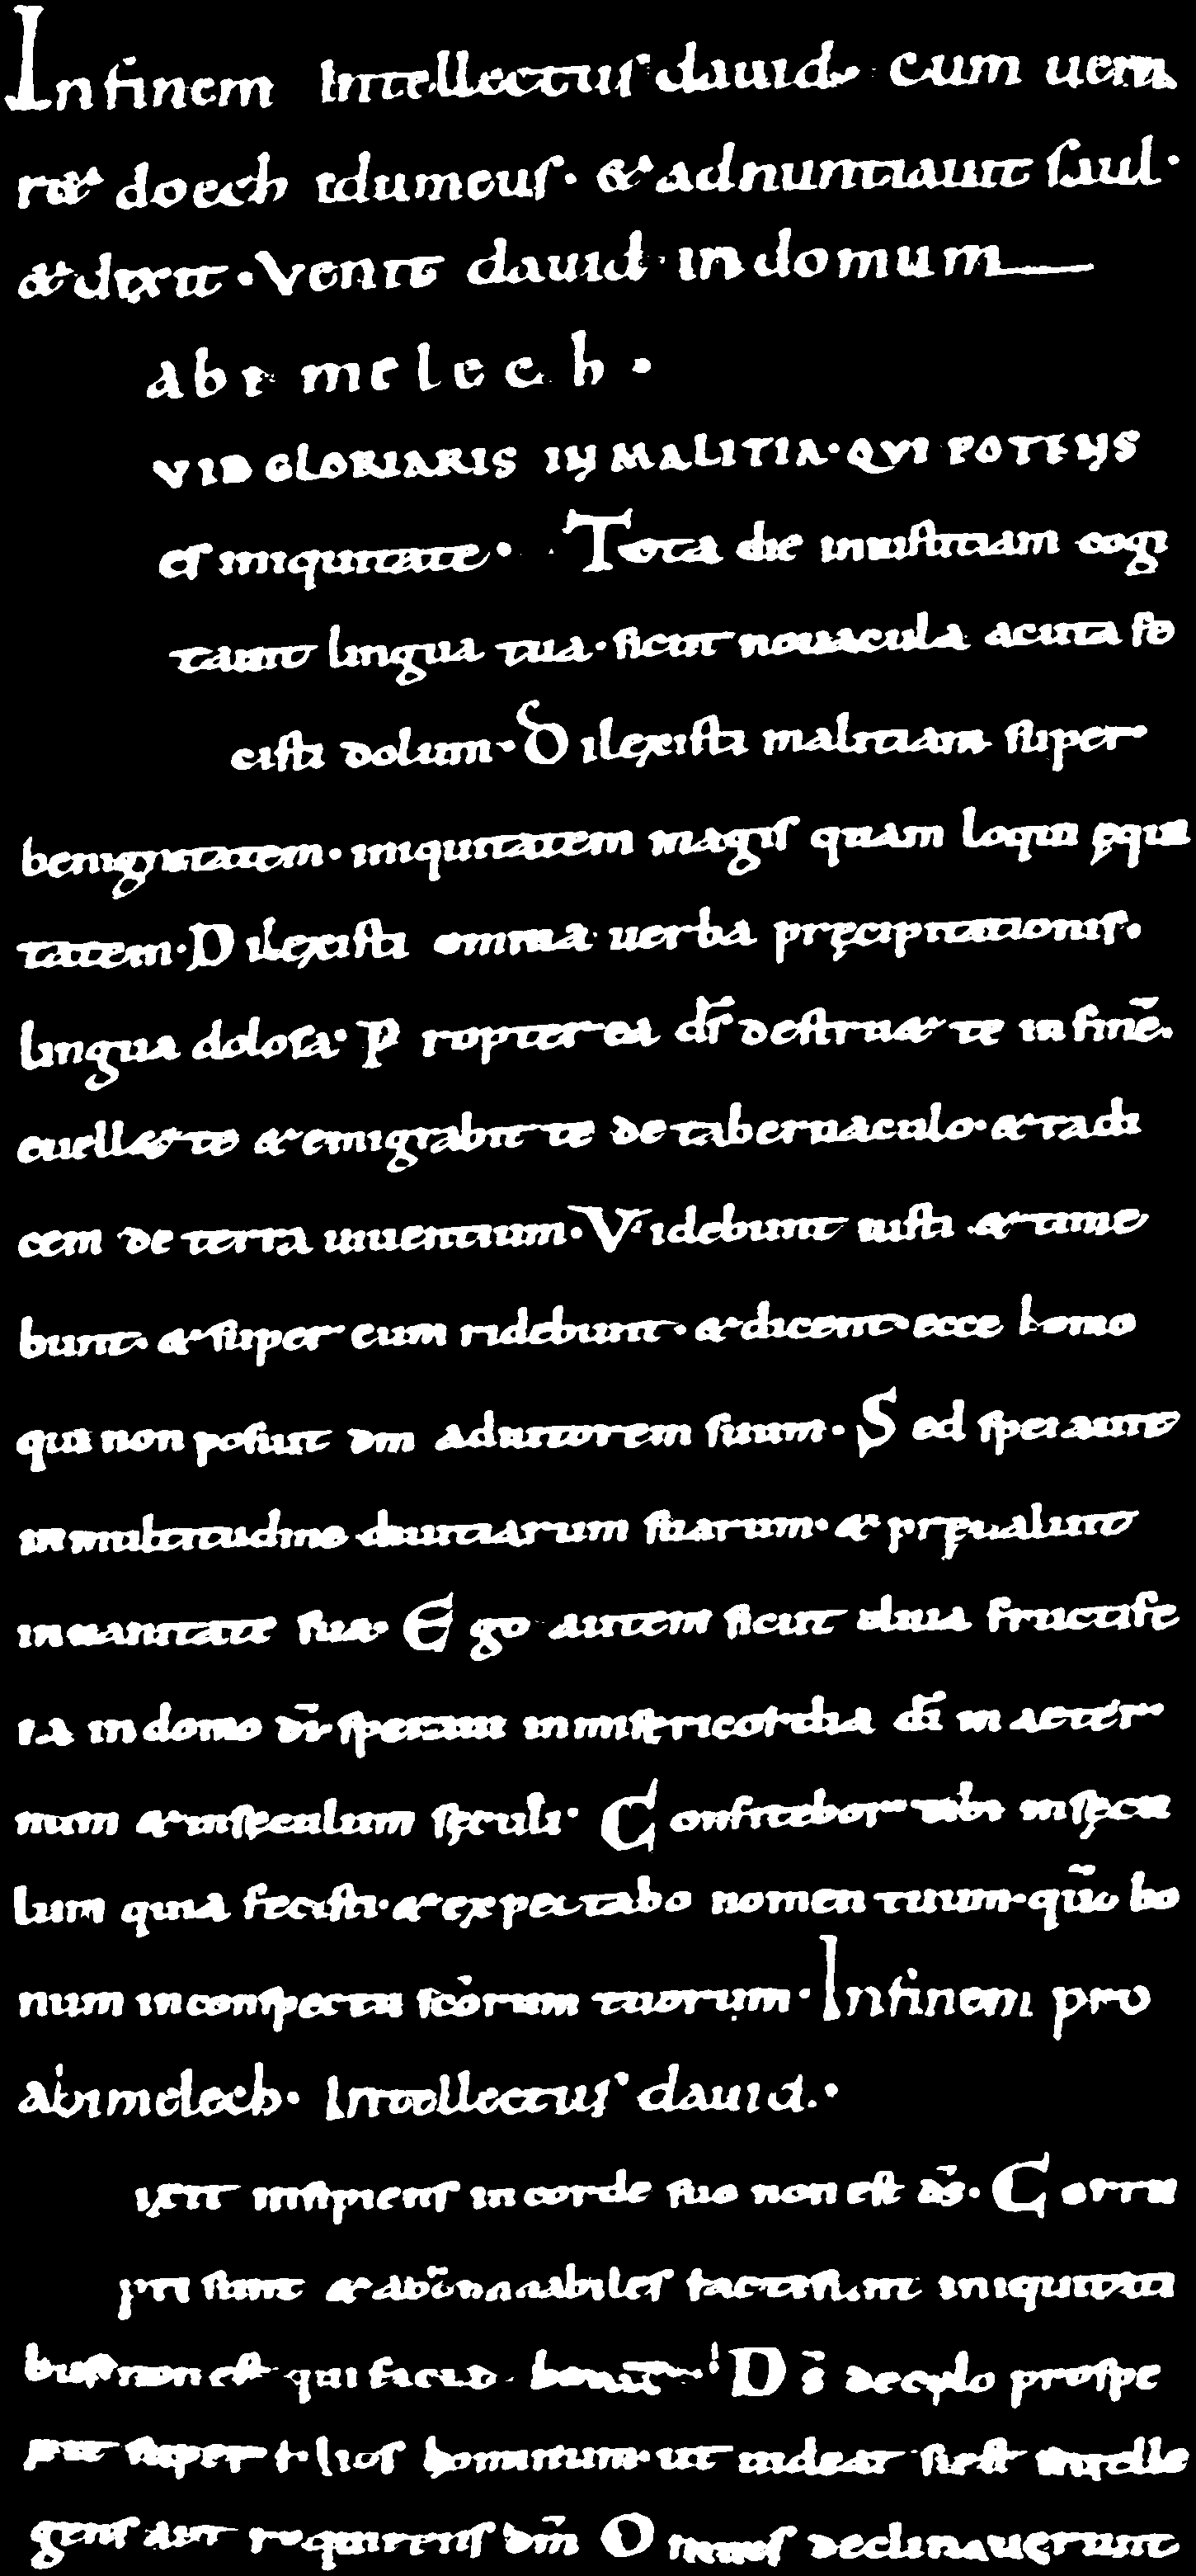 In finem Intellectus dauid cum ueni
ret doech idumeus· & adnuntiauit saul·
& dixit· Venit dauid in domum
abimelech·
VID GLORIARIS IN MALITIA· QVI POTENS
es iniquitate· Tota die iniustitiam cogi
tauit lingua tua· sicut nouacula acuta fe
cisti dolum· Dilexisti malitiam super
benignitatem· iniquitatem magis quam loqui ęqui
tatem· Dilexisti omnia uerba pręcipitationis·
lingua dolosa· Propterea ds̄ destruet te in finē·
euellet te & emigrabit te de tabernaculo· & radi
cem de terra uiuentium· Videbunt iusti & time
bunt· & super eum ridebunt· & dicent ecce homo
qui non posuit dm adiutorem suum· Sed sperauit
in multitudine diuitiarum suarum· & pręualuit
in uanitate sua· Ego autem sicut oliua fructife
ra in domo dī speraui in misericordia dī in aeter
num & in sęculum sęculi· Confitebor tibi in sęcu
lum quia fecisti· & expectabo nomen tuum· qm̄ bo
num in conspectu scōrum tuorum· In finem pro
abimelech· Intellectus dauid·
ixit insipiens in corde suo non est ds̄· Corru
pti sunt & abōminabiles facti sunt in iniquitati
bus non est qui faciat bonū· Ds̄ de cęlo prospe
xit super filios hominum· ut uideat si est intelle
gens aut requirens dm̄ Omnes declinauerunt